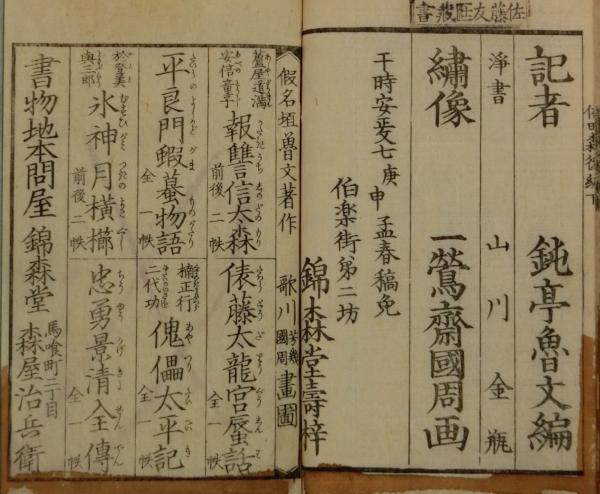 佐藤友旺藏書
記者　鈍亭魯文編
淨書　山川金瓶
繍像　一鶯齋國周画
干時安政七庚申孟春稿免
伯楽街第二坊
錦森堂壽梓
假名垣魯文著作　歌川芳幾國周畫圖
蘆屋道満安倍童子　報讐信太森　前後二帙
俵藤太龍宮蜃話　全一帙
平良門蝦蟇物語　全一帙
楠正行二代功　傀儡太平記　全一帙
於登美與三郎　氷神月横櫛　前後二帙
忠勇景清全傳　全一帙
書物地本問屋　錦森堂　馬喰町二丁目　森屋治兵衛